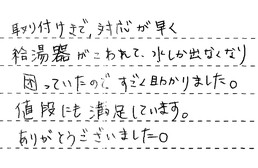 取り付けまで、対応が早く
給湯器がこわれて、水しか出なくなり
困っていたので すごく助かりました。
値段にも満足しています。
ありがとうございました。